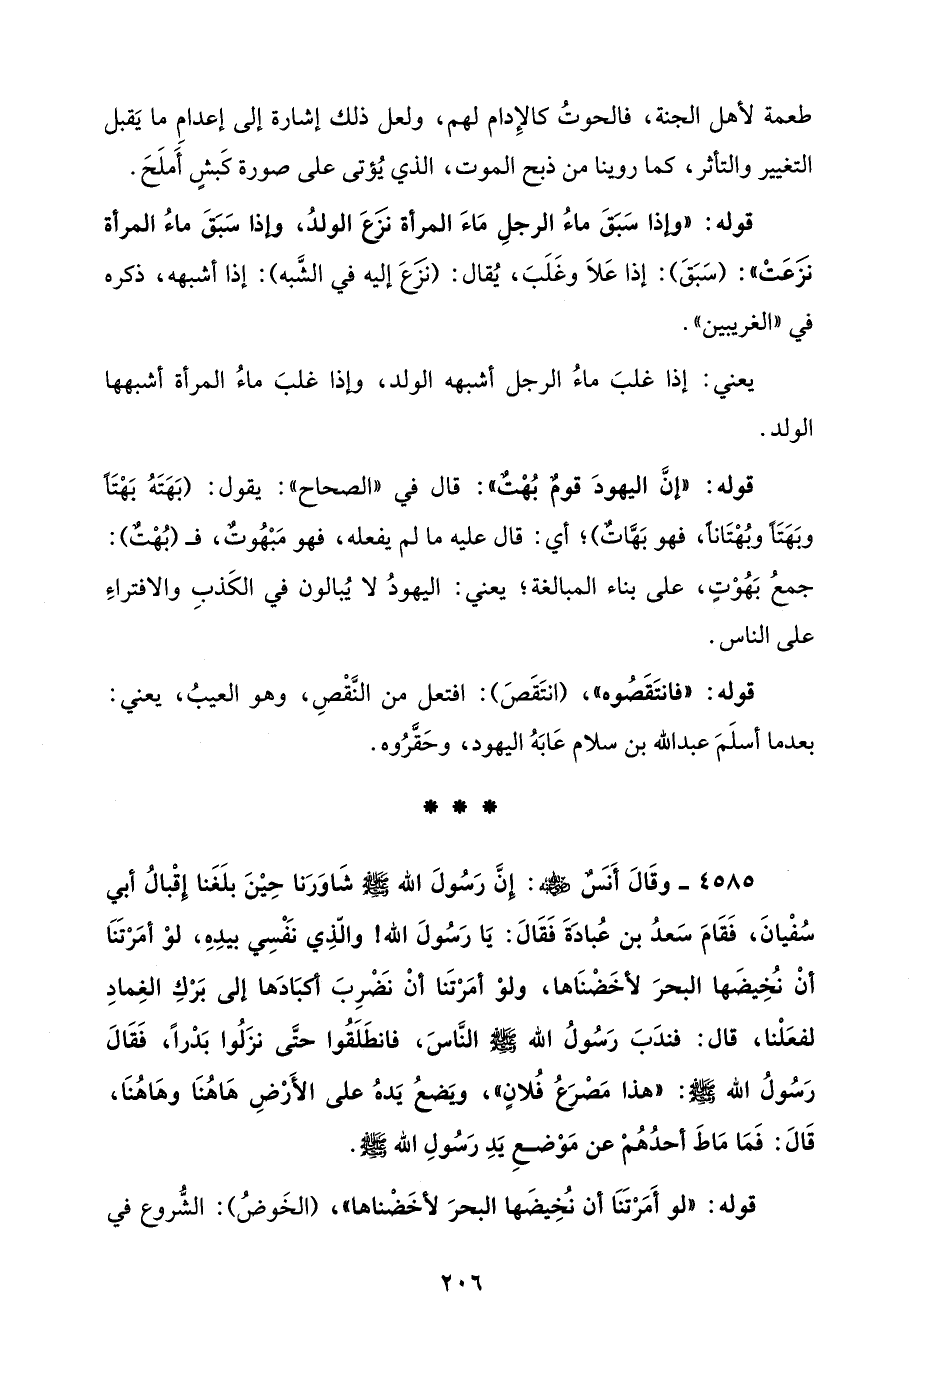 طعمة لأهل الجنة، فالحوتُ كالإدام لهم، ولعل ذلك إشارة إلى إعدامِ ما يَقبل
التغيير والتأثر، كما روينا من ذبح الموت، الذي يُؤتى على صورة كَبشٍ أَملَحَ.
قوله: «وإذا سَبَقَ ماءُ الرجلِ مَاءَ المرأة نزَعَ الولدُ، وإذا سَبَقَ ماءُ المرأة
نزَعَتْ»: (سَبَقَ): إذا عَلاَ وغَلَبَ، يُقال: (نزَعَ إليه في الشَّبه): إذا أشبهه، ذكره
في «الغريبين».
يعني: إذا غلبَ ماءُ الرجل أشبهه الولد، وإذا غلبَ ماءُ المرأة أشبهها
الولد.
قوله: «إنَّ اليهودَ قومٌ بُهْتٌ»: قال في «الصحاح»: يقول: (بَهَتَهُ بَهْتَاً
وبَهَتَاً وبُهْتاناً، فهو بَهَّاتٌ)؛ أي: قال عليه ما لم يفعله، فهو مَبْهُوتٌ، فـ (بُهْتٌ):
جمعُ بَهُوْتٍ، على بناء المبالغة؛ يعني: اليهودُ لا يُبالون في الكَذبِ والافتراءِ
على الناس.
قوله: «فانتَقَصُوه»، (انتَقَصَ): افتعل من النَّقْصِ، وهو العيبُ، يعني:
بعدما أسلَمَ عبدالله بن سلام عَابَهُ اليهود، وحَقَّرُوه.
* * *
٤٥٨٥ ـ وقَالَ أَنَسٌ ﷺ: إنَّ رَسُولَ الله ﷺ شَاوَرَنا حِيْنَ بلَغَنا إقْبالُ أبي
سُفْيانَ، فَقَامَ سَعدُ بن عُبادَةَ فَقَالَ: يَا رَسُولَ الله! والّذِي نَفْسِي بيدِهِ، لوْ أمَرْتَنَا
أنْ نُخِيضَها البحرَ لأخَضْنَاها، ولوْ أمَرْتَنَا أنْ نَضْرِبَ أكبَادَها إلى بَرْكِ الغِمادِ
لفعَلْنا، قال: فندَبَ رَسُولُ الله ﷺ النَّاسَ، فانطَلَقُوا حتَّى نزَلُوا بَدْراً، فَقَالَ
رَسُولُ الله ﷺ: «هذا مَصْرَعُ فُلانٍ»، ويَضعُ يَدهُ على الأَرْضِ هَاهُنَا وهَاهُنَا،
قَالَ: فَمَا مَاطَ أحدُهُمْ عن مَوْضعِ يَدِ رَسُولِ الله ﷺ.
قوله: «لو أَمَرْتَنَا أن نُخِيضَها البحرَ لأخَضْناها»، (الخَوضُ): الشُّروع في
٢٠٦